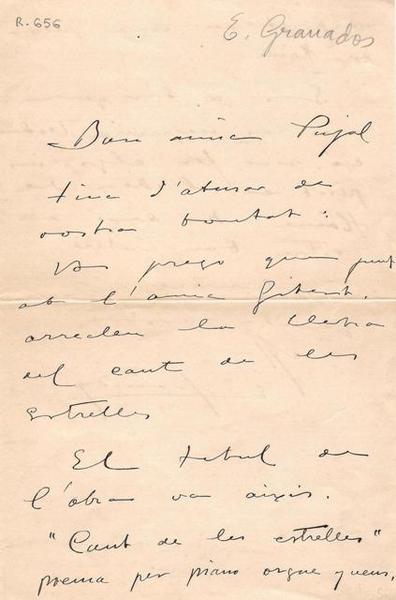 R. 656
E. Granados
Bon amic Pujol
tinc d'abusar de
vostra bontat:
Us prego que junt
ab l'amic Gibert,
arregleu la lletra
del cant de les
estrelles
El títul de
l'obra va aixís.
"Cant de les estrelles"
poema per piano orgue y veus,